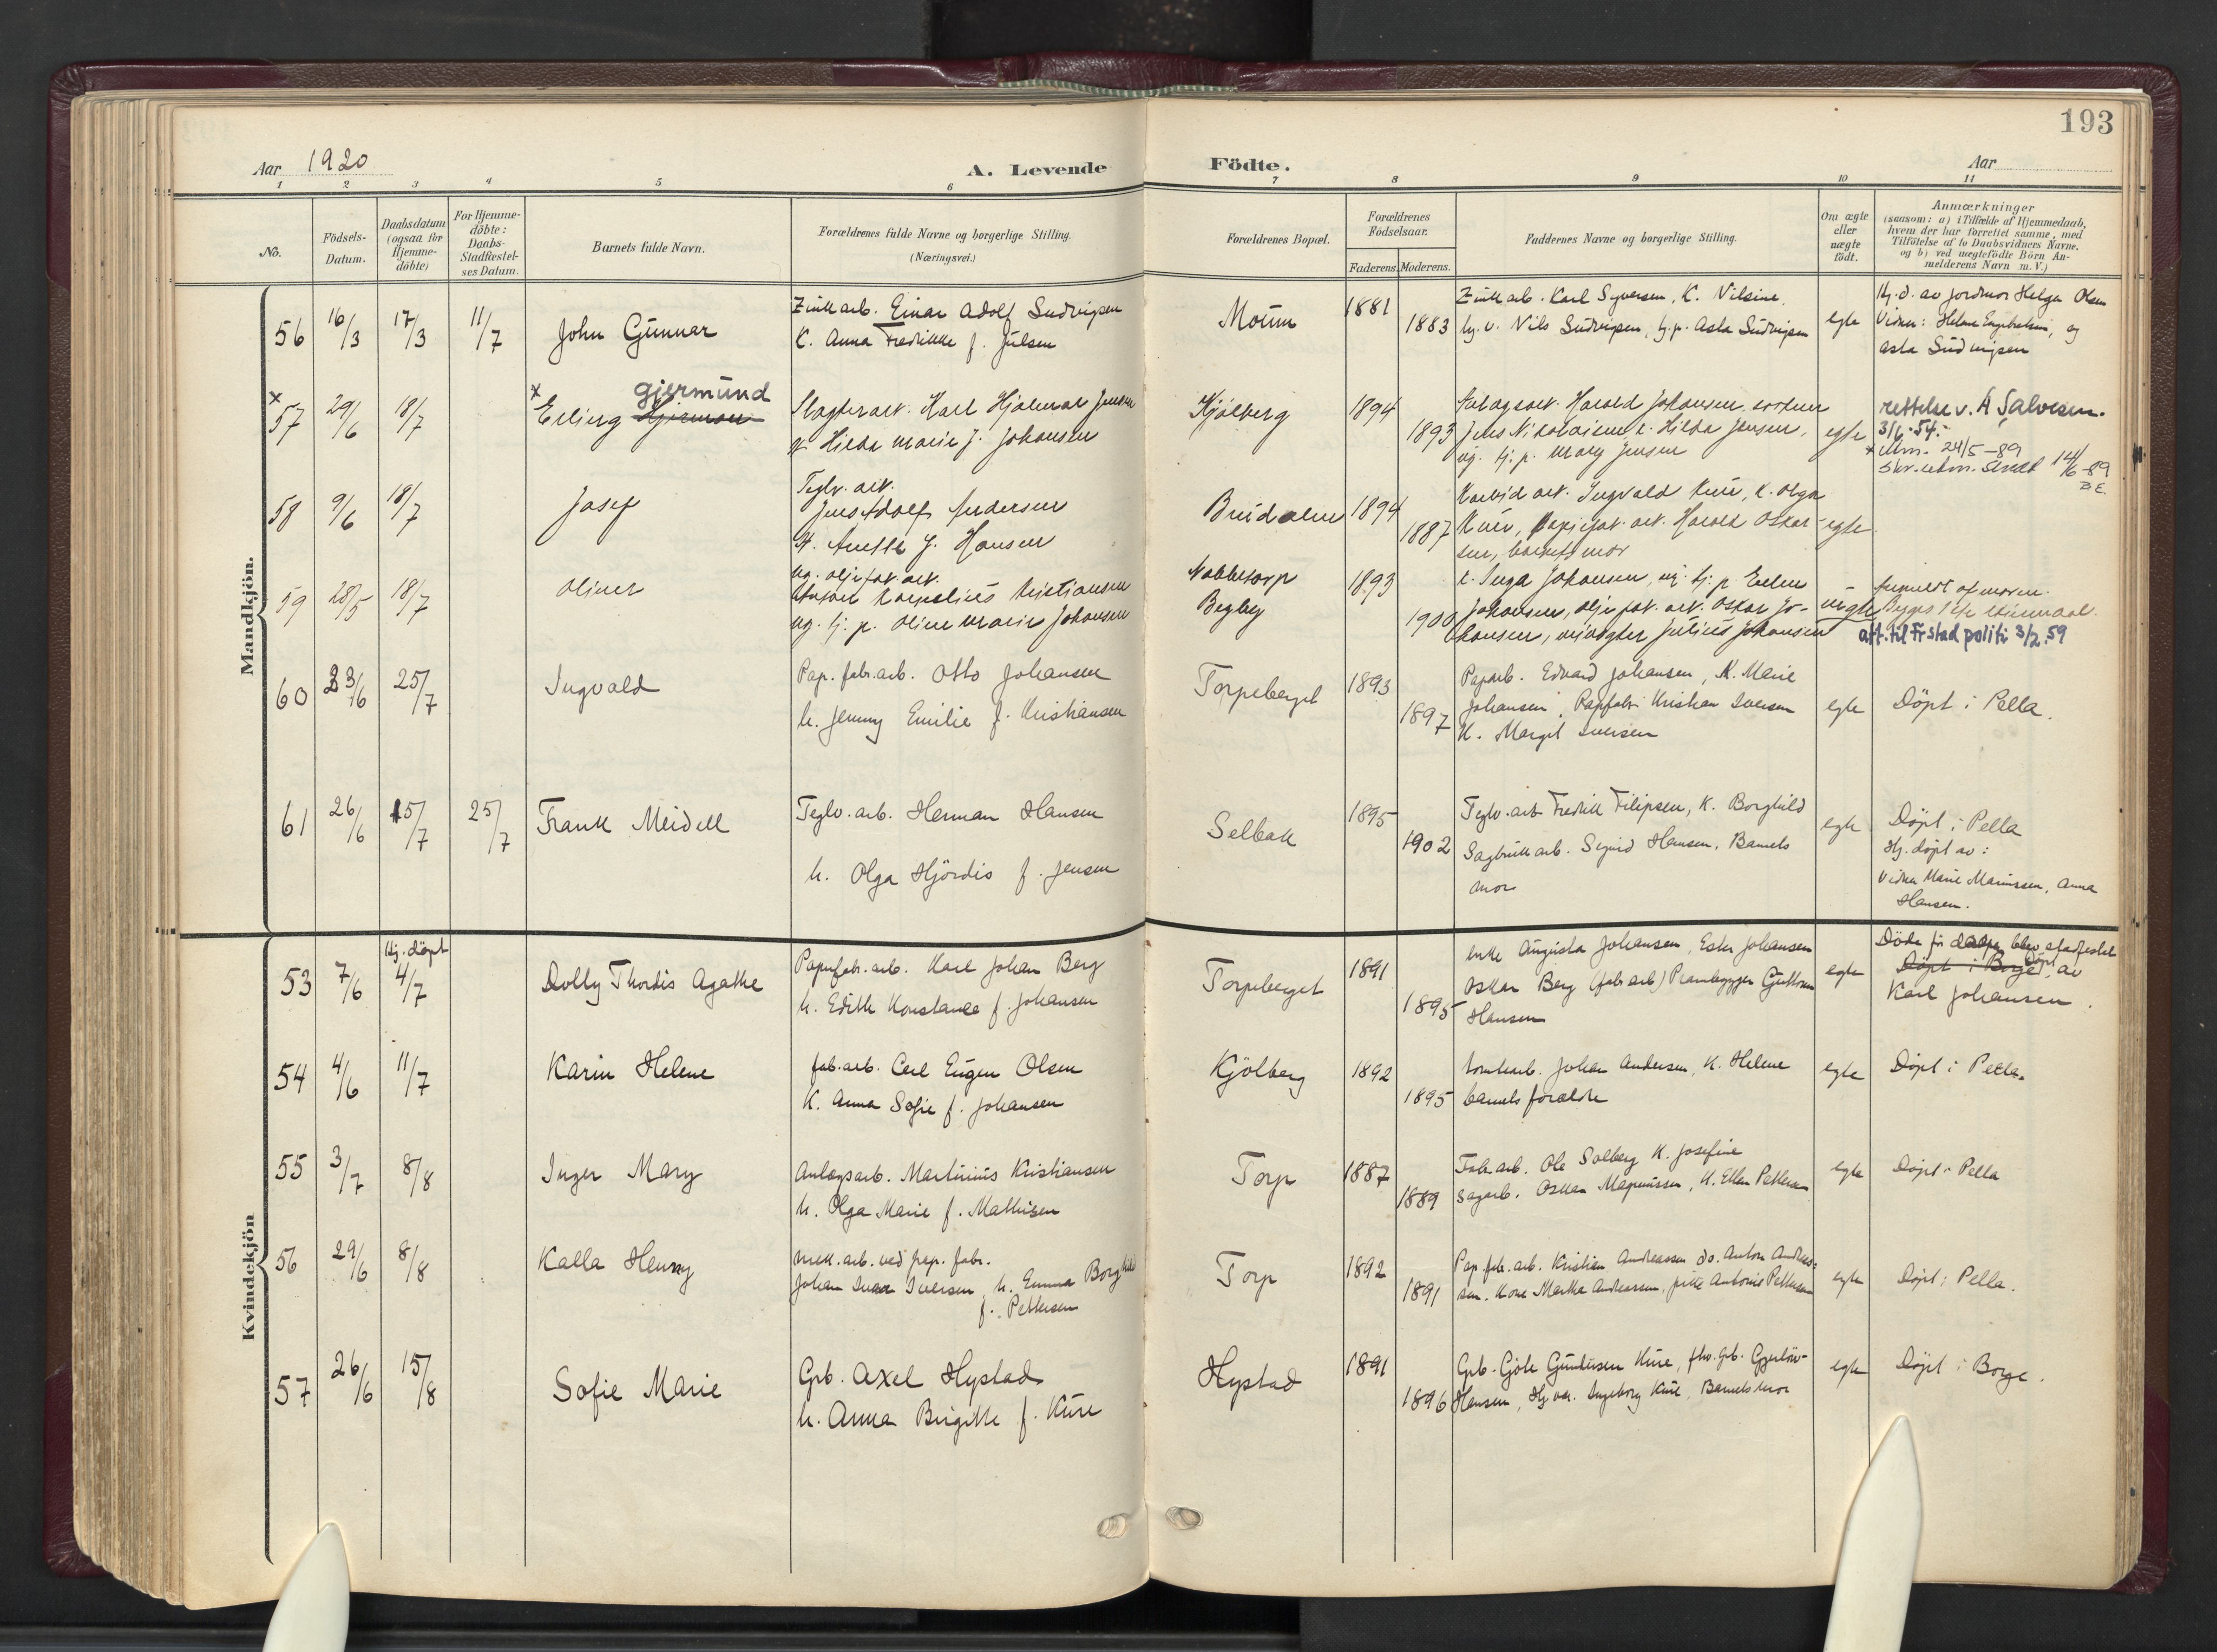 193
Aar 1920
A. Levende
Födte.
Aar
1 2 3 4 5 6 7 8 9 10 11
No.
Födsels-
Datum.
Daabsdatum
(ogsaa for
Hjemme-
döbte)
For Hjemme-
döbte:
Daabs-
Stadfæstel-
ses Datum.
Barnets fulde Navn.
Forældrenes fulde Navne og borgerlige Stilling.
(Næringsvei.)
Forældrenes Bopæl.
Forældrenes
Födselsaar.
Faderens. Moderens.
Faddernes Navne og borgerlige Stilling.
Om ægte
eller
uægte
födt.
Anmærkninger
(saasom: a) i Tilfælde af Hjemmedaab,
hvem der har forrettet samme, med
Tilföielse af to Daabsvidners Navne.
og b) ved uægtefödte Börn An-
melderens Navn m. V.)
Mandkjön.
56 16/3 17/3 11/7 John Gunnar
Zinkarb. Einar Adolf Ludvigsen
K. Anna Fredrikke f. Julsen
Moum
1881
1883
Zinkarb. Karl Syversen, K. Nilsine
Nils Ludvigsen, tj.p. Asta Ludvigsen
egte
Hj. d. av jordmor Helga Olsen
Vidner: Helene og
Asta Ludvigsen
x 57 29/6 18/7 x Erling Hjerman gjermund
Slagteriarb. Karl Hjalmar Jensen
K. Hilda Marie f. Johansen
Kjölberg
1894
1893
Anlagsarb. Harald Johansen,
Jens Nikolaisen, k. Hilda Jensen,
ug. tj. p. Mary Jensen
egte
rettelse v. A Salvesen.
3/6 54.
x Utm. 24/5-89
Skr. utm. sendt 14/6-89
BE.
58 9/6 18/7 Josef
Teglv. arb.
Jens Adolf Andersen
K. Anette f. Hansen
1894
1887
Karbid arb. Ingvald Kure, k. Olga
Kure, Papirfab. arb. Harald Oskar-
sen, barnets mor
egte
59 28/5 18/7 Oliver
ug. oljefab. arb.
Kornelius Kristiansen
ug. tj. p. Oline Marie Johansen
Nabbetorp
Begby
1893
1900
k. Inga Johansen, ug. tj. p. Evelen
Johansen, oljefab. arb. Oskar Jo-
hansen, Julius Johansen
uegte
Anmeldt af moren.
att. til Fr stad politi 3/2.59
60 23/6 25/7 Ingvald
Pap. fabr. arb. Otto Johansen
K. Jenny Emilie f. Kristiansen
Torpeberget
1893
1897
Paparb. Edvard Johansen, K. Marie
Johansen, Papfabr. Kristian Iversen
K. Margit Iversen
egte
Döpt i Pella.
61 26/6 15/7 25/7 Frank Meidell
Teglv. arb. Herman Hansen
K. Olga Hjördis f. Jensen
Selbak
1895
1902
Teglv. arb Fredrik Filipsen, K. Borghild
Sagbrukarb. Sigurd Hansen, Barnets
mor
egte
Döpt i Pella
Hj. döpt av:
Vidner Marie Marinssen, Anna
Hansen.
Kvindekjön
53 7/6 Hj. döpt 4/7 Dolly Thordis Agathe
Papirfabr. arb. Karl Johan Berg
K. Edith Konstance f. Johansen
Torpeberget
1891
1895
enke Augusta Johansen, Ester Johansen
Oskar Berg (fabr arb) Prambygger Guttorm
Hansen
egte
Döde för daapen blev stadfestet
Döpt i Borge Döpt av
Karl Johansen.
54 4/6 11/7 Karin Helene
fab. arb. Carl Eugen Olsen
K. Anna Sofie f. Johansen
Kjölberg
1892
1895
Tomtearb. Johan Andersen, K. Helene
barnets forældre
egte
Döpt i Pella.
55 3/7 8/8 Inger Mary
Anlægsarb. Martinius Kristiansen
K. Olga Marie f. Mathisen
Torp
1887
1889
Fabr. arb. Ole Solberg K. Josefine
Sagarb. Oskar Magnussen, K. Ellen Pettersen
egte
Döpt i Pella
56 29/6 8/8 Kalla Henny
mek. arb. ved pap. fabr.
Johan Ivar Iversen, K. Emma Borghild
f. Pettersen
Torp
1892
1891
Pap. fab. arb. Kristian Andreassen do. Anton Andreas-
sen. Kone Martha Andreassen, pike Antonie Pettersen
egte
Döpt i Pella.
57 26/6 15/8 Sofie Marie
Grb. Axel Hystad
K. Anna Birgitte f. Kure
Hystad
1891
1896
Grb. Gjöte Gundersen Kure, fhv. Grb. Gjerlöw-
Hansen, Hj. vær. Ingeborg Kure, Barnets mor
egte
Döpt i Borge.